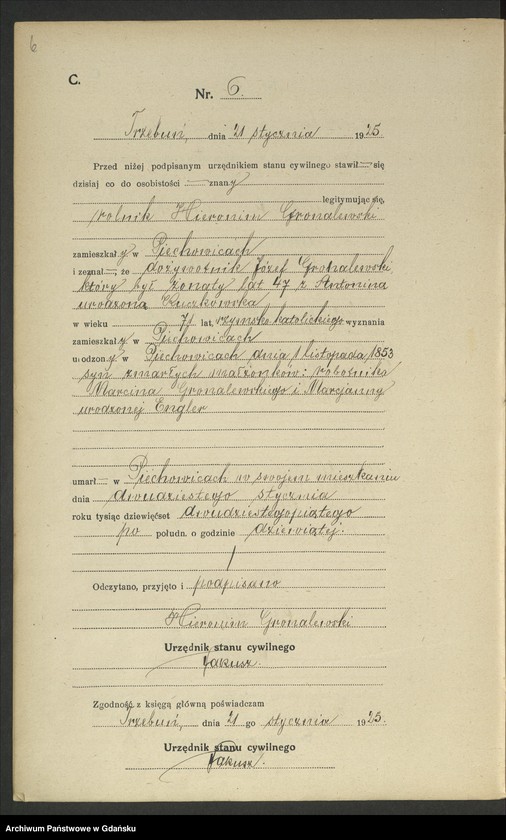 6
C.
Nr. 6.
Trzebuń, dnia 21 stycznia 1925
Przed niżej podpisanym urzędnikiem stanu cywilnego stawił się
dzisiaj co do osobistości znany
legitymując się,
rolnik Hieronim Gronalewski
zamieszkały w Piechowicach
i zeznał, że dożywotnik Józef Gronalewski
który był żonaty lat 47 z Antonina
urodzona Kuczkowska
w wieku 71 lat, rzymsko katolickiego wyznania
zamieszkały w Piechowicach
urodzony w Piechowicach dnia 1 listopada 1853
syn zmarłych małżonków: robotnika
Marcina Gronalewskiego i Marcjanny
urodzonej Engler
umarł w Piechowicach w swojem mieszkaniu
dnia dwudziestego stycznia
roku tysiąc dziewięćset dwudziestegopiątego
po połudn. o godzinie dziewiątej.
Odczytano, przyjęto i podpisano
Hieronim Gronalewski
Urzędnik stanu cywilnego
Jakusz.
Zgodność z księgą główną poświadczam
Trzebuń, dnia 21 go stycznia 1925.
Urzędnik stanu cywilnego
Jakusz.
Archiwum Państwowe w Gdańsku